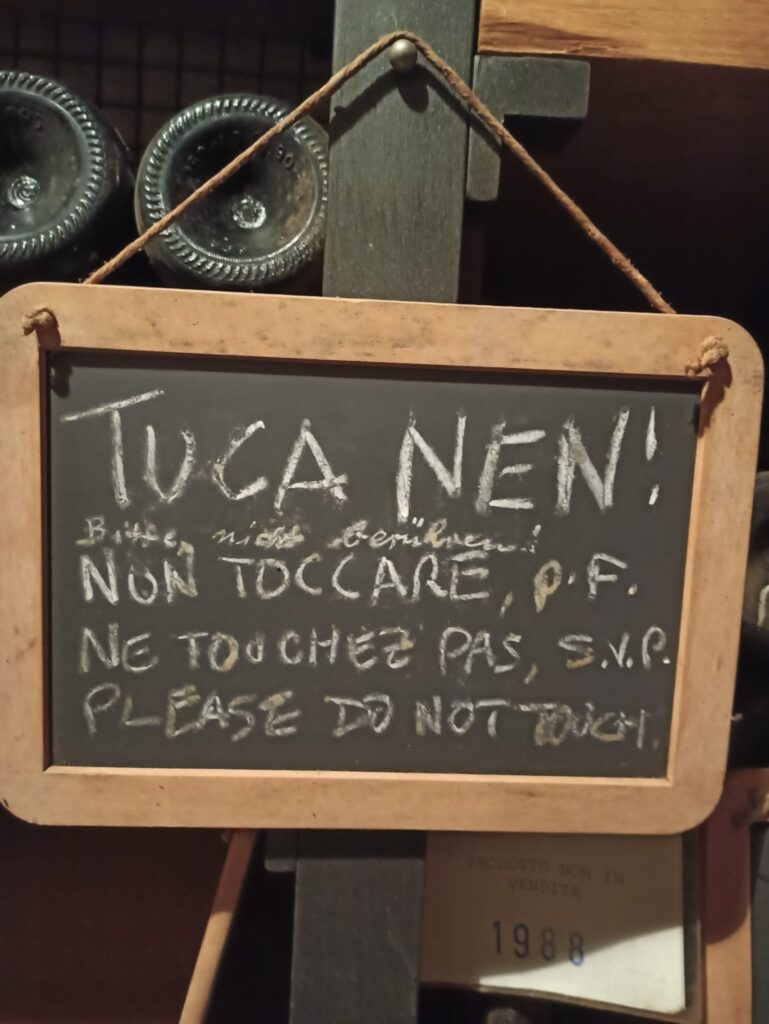 TUCA NEN!
Bitte, nicht berühren!
NON TOCCARE, P.F.
NE TOUCHEZ PAS, S.V.P.
PLEASE DO NOT TOUCH.
PRODOTTO NON IN
VENDITA
1988